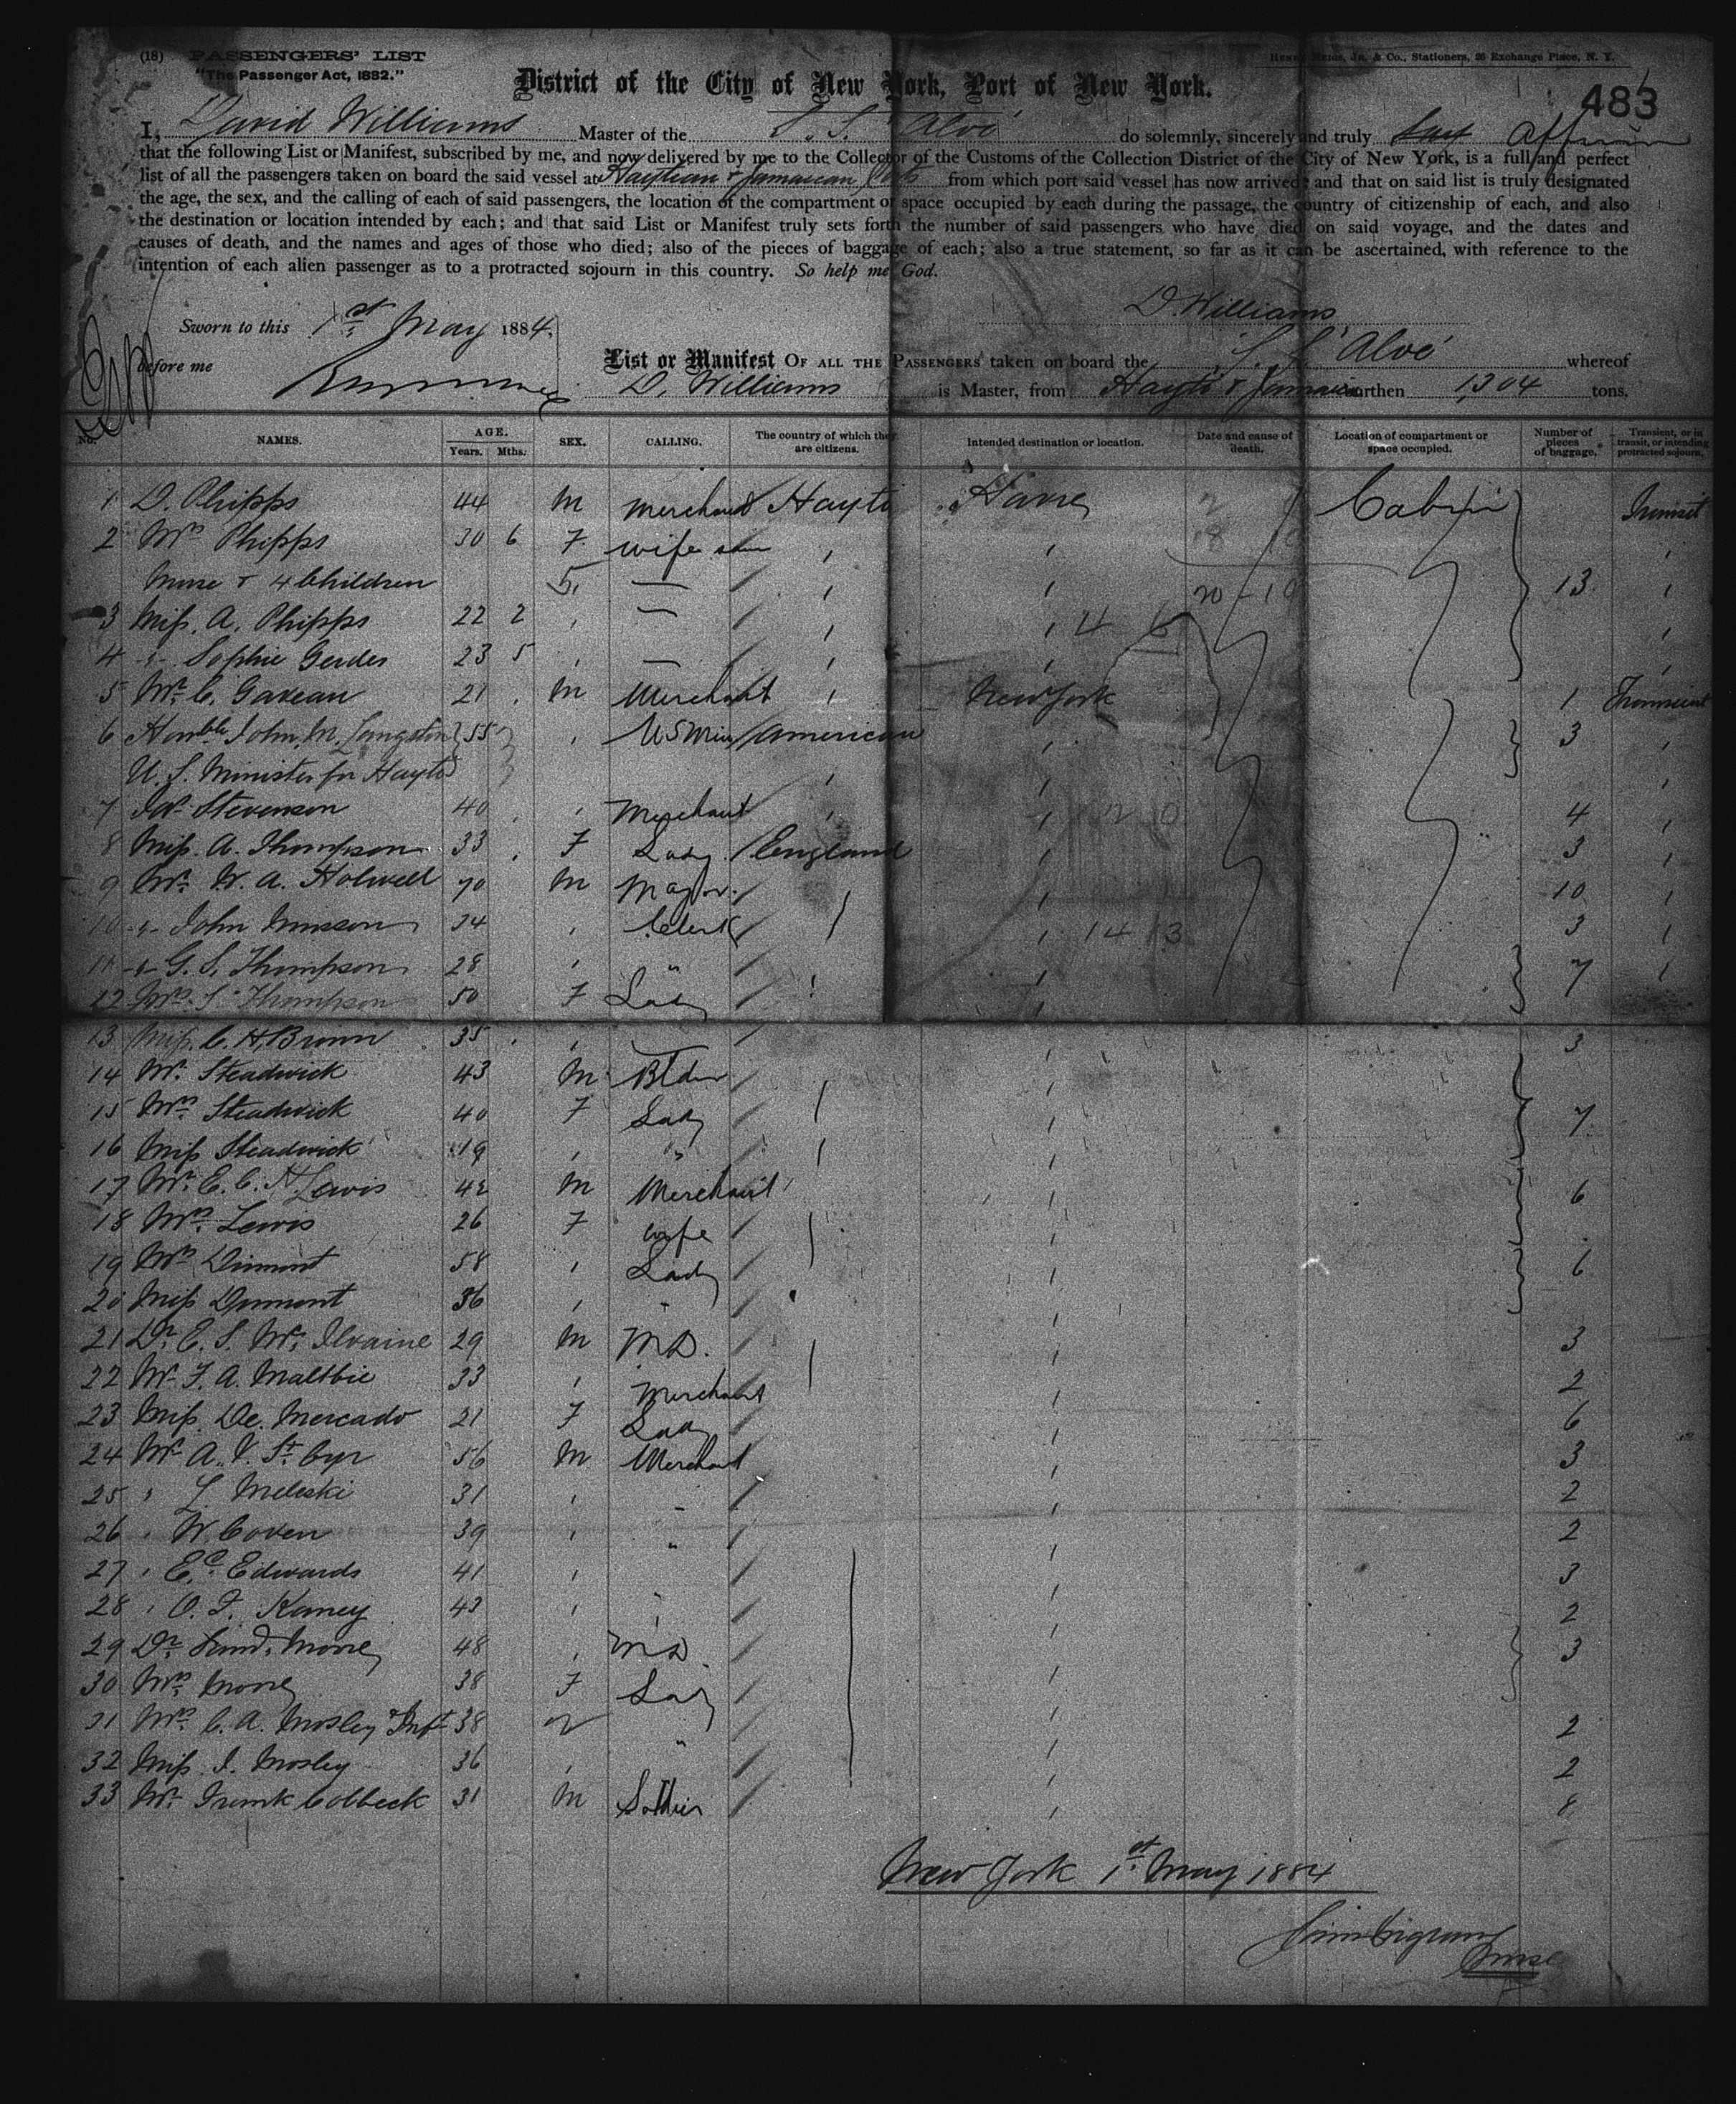 (18) PASSENGERS' LIST
"The Passenger Act, 1882."
HENRY JR. & Co., Stationers, 26 Exchange Place, N. Y.
District of the City of New York, Port of New York.
483
I, David Williams Master of the S. S. "Alvo" do solemnly, sincerely and truly Affirm
that the following List or Manifest, subscribed by me, and now delivered by me to the Collector of the Customs of the Collection District of the City of New York, is a full and perfect
list of all the passengers taken on board the said vessel at Haytian & Jamaican Ports from which port said vessel has now arrived; and that on said list is truly designated
the age, the sex, and the calling of each of said passengers, the location of the compartment or space occupied by each during the passage, the country of citizenship of each, and also
the destination or location intended by each; and that said List or Manifest truly sets forth the number of said passengers who have died on said voyage, and the dates and
causes of death, and the names and ages of those who died; also of the pieces of baggage of each; also a true statement, so far as it can be ascertained, with reference to the
intention of each alien passenger as to a protracted sojourn in this country. So help me God.
D. Williams
Sworn to this 1st May 1884.
before me
List or Manifest OF ALL THE PASSENGERS taken on board the S. S. "Alvo" whereof
D. Williams is Master, from Hayti & Jamaica burthen 1304 tons.
No. NAMES. AGE. Years. Mths. SEX. CALLING. The country of which they are citizens. Intended destination or location. Date and cause of death. Location of compartment or space occupied. Number of pieces of baggage. Transient, or in transit, or intending protracted sojourn.
1 D. Phipps 44 M Merchant Hayti Havre Cabin Transit
2 Mrs Phipps 30 6 F wife " "
Nurse & 4 Children 5 — " " 13 "
3 Miss A. Phipps 22 2 " — " " "
4 -"- Sophie Gerdes 23 5 " — " " "
5 Mr C. Gaveau 21 M Merchant " New York 1 Transient
6 Honble John M. Langston 55 " US Min American " 3 "
U. S. Minister for Hayti " " "
7 Stevenson 40 " Merchant " " 4 "
8 Miss A. Thompson 33 F Lady England " 3 "
9 Mr W. A. Holwell 70 M Major " " 10 "
10 -"- John Minson 34 " Clerk " " 3 "
11 -"- G. S. Thompson 28 " " " 7 "
12 Mrs S Thompson 50 F Lady " "
13 Miss C. H. Brown 35 " — " 3
14 Mr Steadwick 43 M "
15 Mrs Steadwick 40 F Lady " " 7
16 Miss Steadwick 19 " " " "
17 Mr E. C. H Lewis 42 M Merchant " 6
18 Mrs Lewis 26 F wife " "
19 Mrs Dumont 58 " Lady " 6
20 Miss Dumont 36 " " "
21 Dr E. S. Mc Ilvaine 29 M M.D. " " 3
22 Mr F. A. Maltbie 33 " Merchant " 2
23 Miss De Mercado 21 F Lady " 6
24 Mr A. V. St Cyr 56 M Merchant " 3
25 " L Meleski 31 " " " 2
26 " W Coven 39 " " " 2
27 " E. C. Edwards 41 " " 3
28 " O. F. Kaney 43 " " " 2
29 Dr Moore 48 " MD " 3
30 Mrs Moore 38 F Lady "
31 Mrs C. A. Mosley & Inft 38 2 " " 2
32 Miss I. Mosley 36 " " 2
33 Mr Frank Colbeck 31 M " 8
New York 1st May 1884
Purser